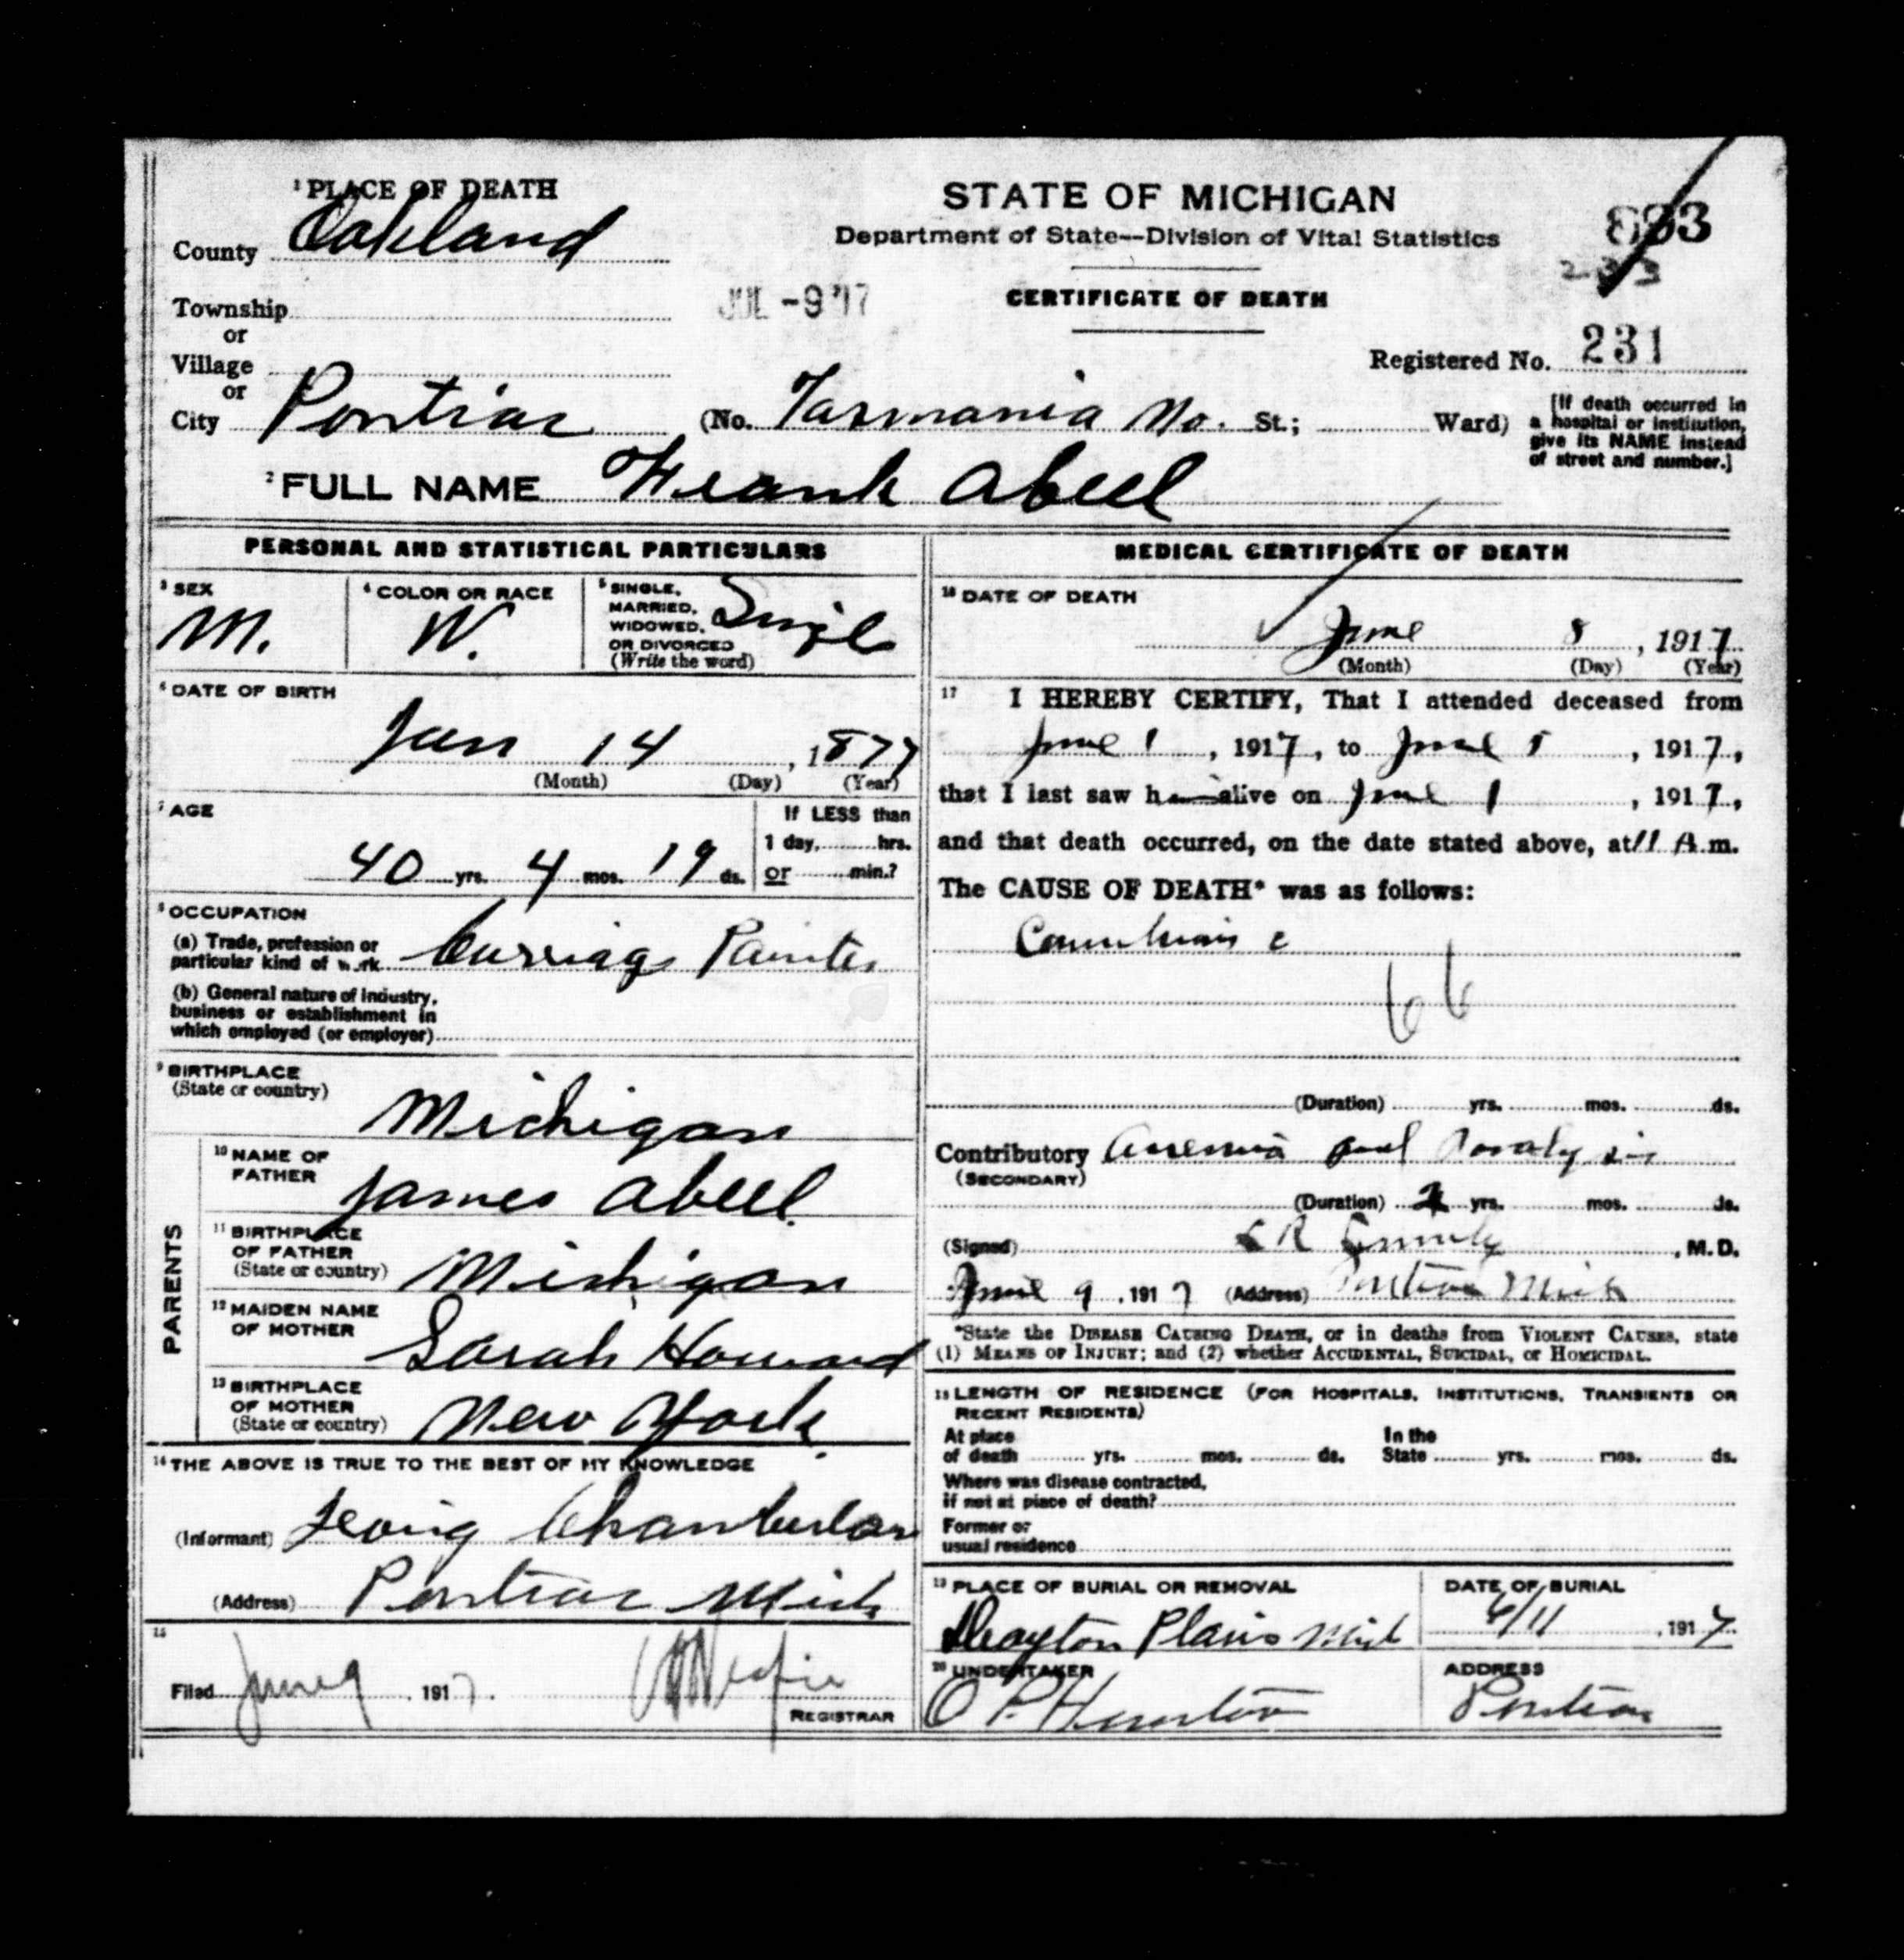 ¹ PLACE OF DEATH
County Oakland
Township
or
Village
or
City Pontiac (No. Tasmania No. St.; Ward)
STATE OF MICHIGAN
Department of State—Division of Vital Statistics
CERTIFICATE OF DEATH
JUL -9 '17
883
233
Registered No. 231
[If death occurred in
a hospital or institution,
give its NAME instead
of street and number.]
² FULL NAME Frank Abeel
PERSONAL AND STATISTICAL PARTICULARS
³ SEX
M.
⁴ COLOR OR RACE
W.
⁵ SINGLE,
MARRIED,
WIDOWED,
OR DIVORCED
(Write the word)
Single
⁶ DATE OF BIRTH
Jan 14, 1877
(Month) (Day) (Year)
⁷ AGE
40 yrs. 4 mos. 19 ds.
If LESS than
1 day, hrs.
or min.?
⁸ OCCUPATION
(a) Trade, profession or
particular kind of work Carriage Painter
(b) General nature of industry,
business or establishment in
which employed (or employer)
⁹ BIRTHPLACE
(State or country)
Michigan
PARENTS
¹⁰ NAME OF
FATHER
James Abeel
¹¹ BIRTHPLACE
OF FATHER
(State or country) Michigan
¹² MAIDEN NAME
OF MOTHER
Sarah Howard
¹³ BIRTHPLACE
OF MOTHER
(State or country) New York
¹⁴ THE ABOVE IS TRUE TO THE BEST OF MY KNOWLEDGE
(Informant) Chamberlain
(Address) Pontiac Mich
¹⁵
Filed June 9, 1917.
REGISTRAR
MEDICAL CERTIFICATE OF DEATH
¹⁶ DATE OF DEATH
June 8, 1917
(Month) (Day) (Year)
¹⁷ I HEREBY CERTIFY, That I attended deceased from
June 1, 1917, to June, 1917,
that I last saw h alive on June 1, 1917,
and that death occurred, on the date stated above, at 11 A.m.
The CAUSE OF DEATH* was as follows:
66
(Duration) yrs. mos. ds.
Contributory Anemia and Paralysis
(SECONDARY)
(Duration) yrs. mos. ds.
(Signed) , M. D.
June 9, 1917 (Address) Pontiac Mich
*State the DISEASE CAUSING DEATH, or in deaths from VIOLENT CAUSES, state
(1) MEANS OF INJURY; and (2) whether ACCIDENTAL, SUICIDAL, or HOMICIDAL.
¹⁸ LENGTH OF RESIDENCE (FOR HOSPITALS, INSTITUTIONS, TRANSIENTS OR
RECENT RESIDENTS)
At place
of death yrs. mos. ds.
In the
State yrs. mos. ds.
Where was disease contracted,
if not at place of death?
Former or
usual residence
¹⁹ PLACE OF BURIAL OR REMOVAL
Drayton Plains Mich
DATE OF BURIAL
6/11, 1917
²⁰ UNDERTAKER
O P
ADDRESS
Pontiac